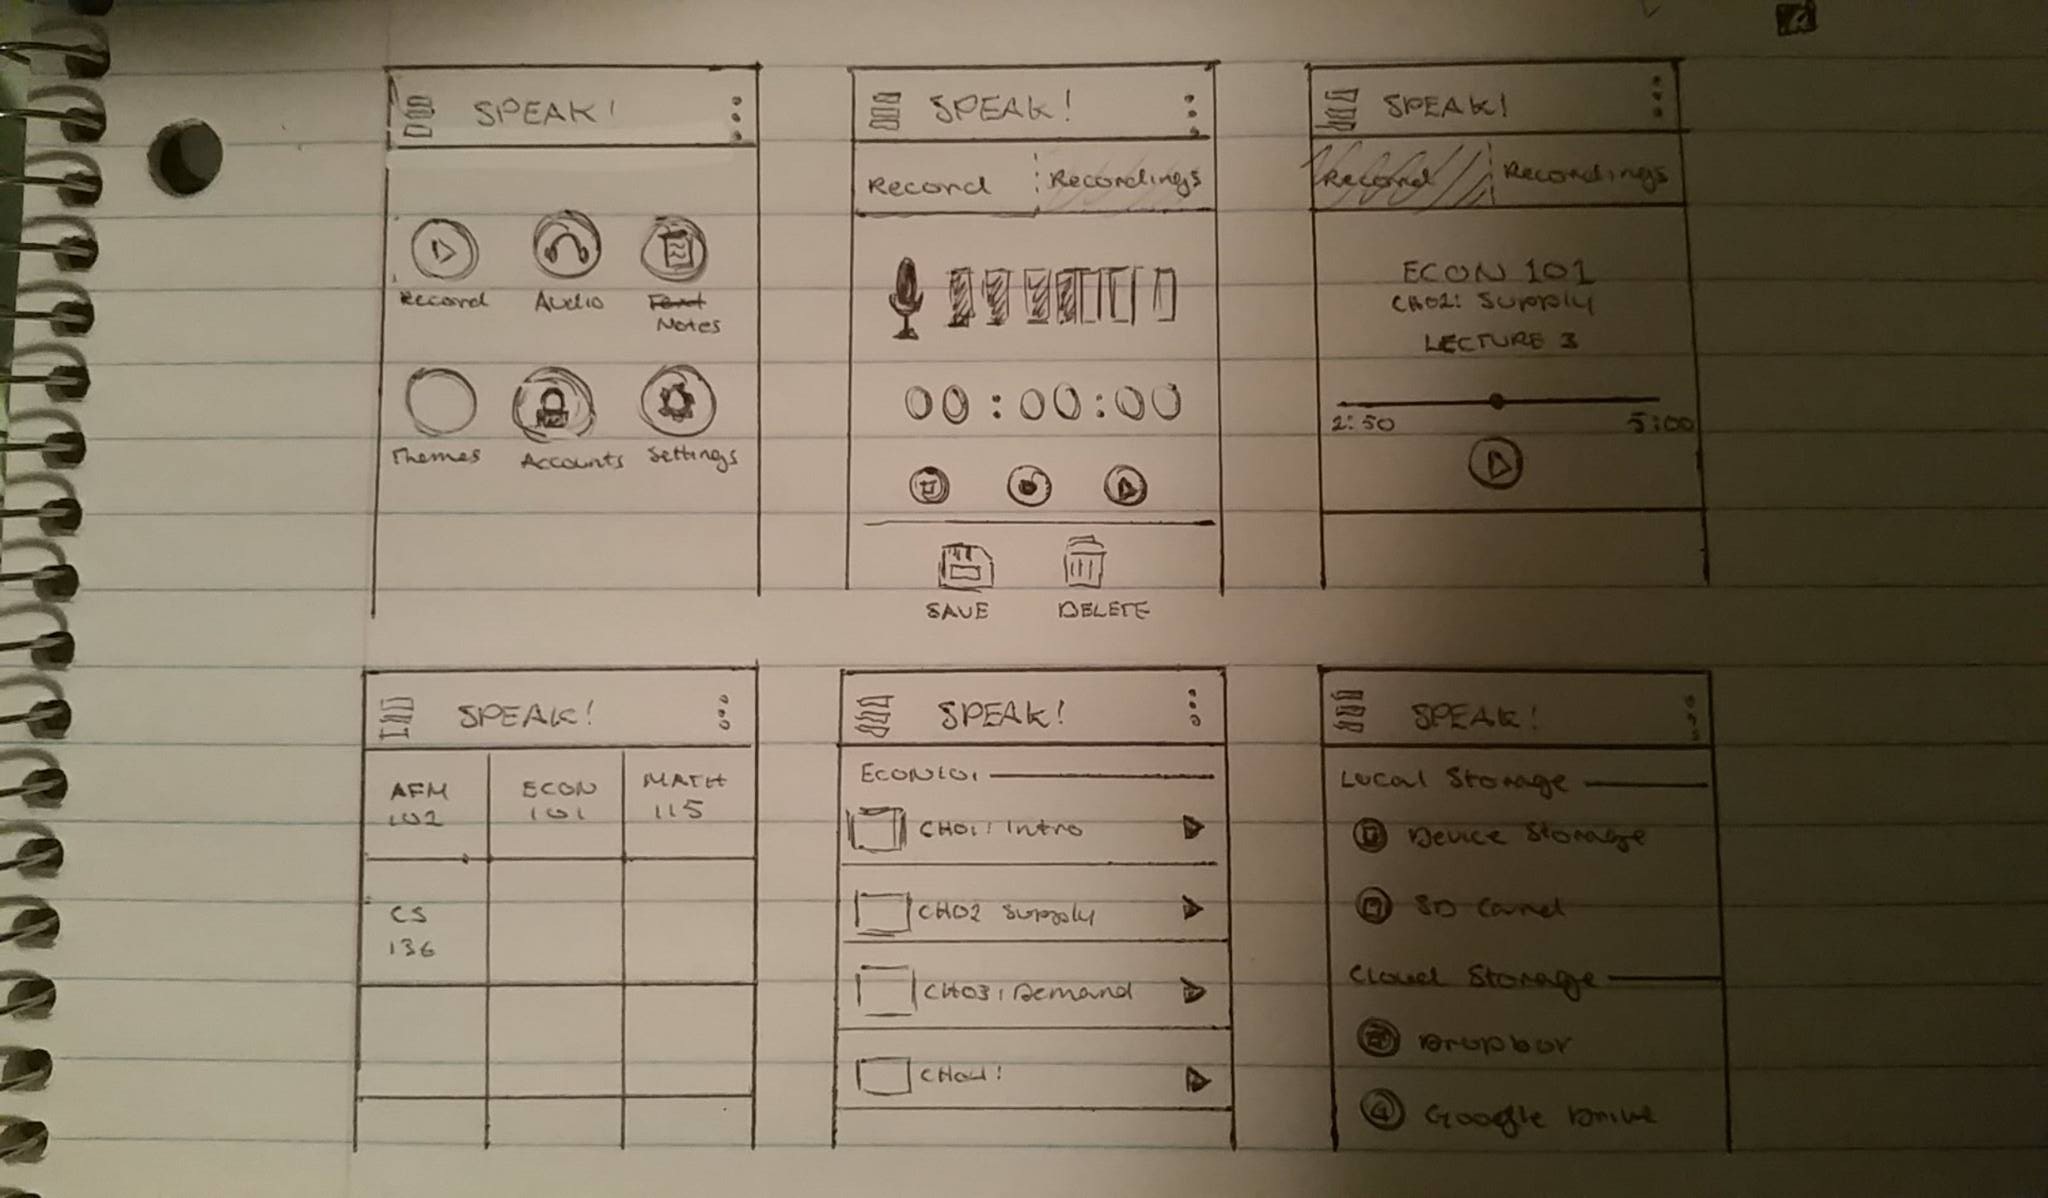 SPEAK!
Record
Audio
Notes
Themes
Accounts
Settings
SPEAK!
Record
Recordings
00:00:00
SAVE
DELETE
SPEAK!
Record
Recordings
ECON 101
CH02: Supply
LECTURE 3
2:50
5:00
SPEAK!
AFM
102
ECON
101
MATH
115
CS
136
SPEAK!
ECON101
CH01: Intro
CH02 Supply
CH03: Demand
CH04:
SPEAK!
Local Storage
Device Storage
SD Card
Cloud Storage
Dropbox
Google Drive